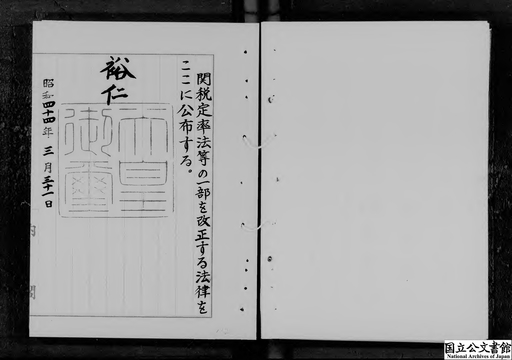 関税定率法等の一部を改正する法律を
ここに公布する。
裕仁
天皇御璽
昭和四十四年三月三十一日
内閣
国立公文書館
National Archives of Japan